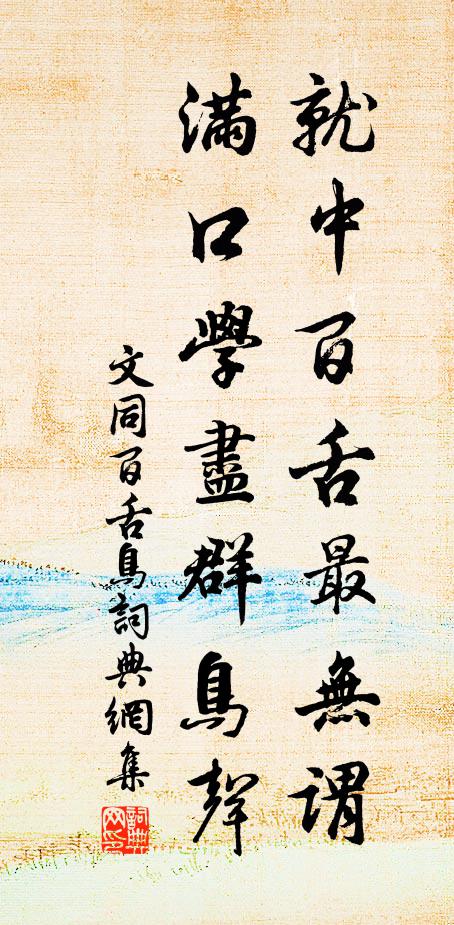 就中百舌最無謂
滿口學盡群鳥聲
文同百舌鳥詞典網集
詞典網印